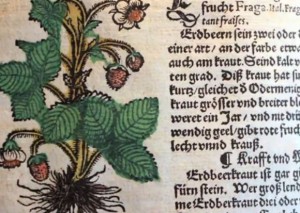 frucht Fraga. Ital. Frag
tant fraises.
Erdbeern sein zwei oder d
einer art / an der farbe etwa
auch am kraut. Seind kalt v
ten grad. Diß kraut hat si
kurtz / gleichet d Odermenig
kraut grösser vnd breiter bl
weret ein Jar / vnd mit drü
wendig geel / gibt rote fruc
lecht vnnd krauß.
¶ Krafft vnd W
Erdbeerkraut ist gar gů
fürn stein. Wer groß len
me Erdbeerkraut dici oder